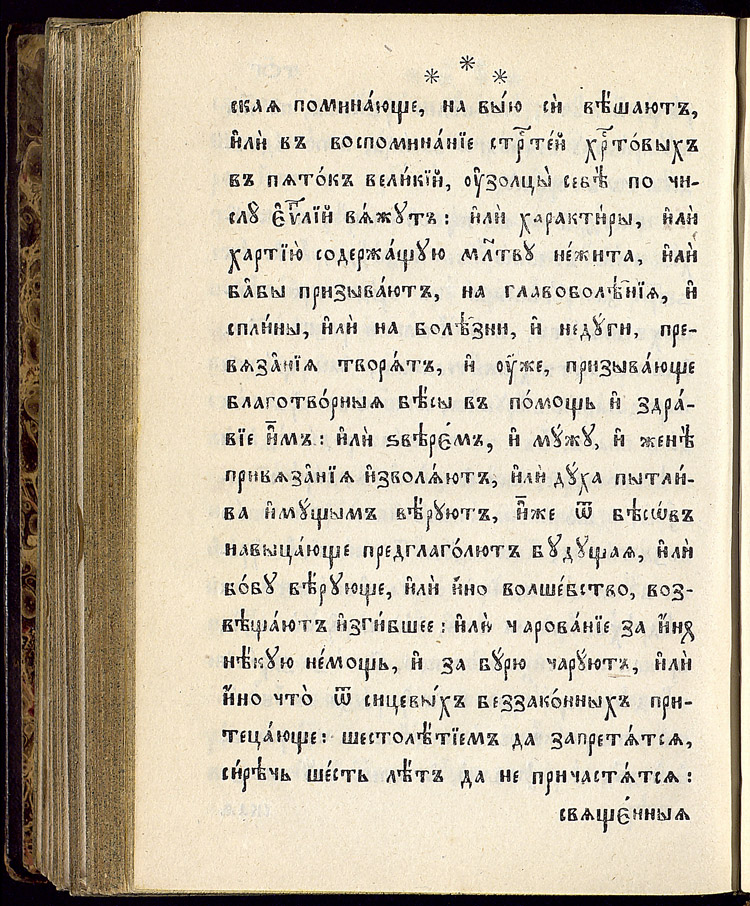 * * *
скаѧ помина́юще, на вы́ю сѝ вѣ́шаютъ,
и҆лѝ въ воспомина́нїе стр҇те́й хр҇то́выхъ
въ пѧто́къ вели́кїй, оу҆золцы̀ себѣ̀ по чи-
слꙋ̀ є҆ѵⷢ҇лїй вѧ́жꙋтъ: и҆лѝ характи́ры, и҆лѝ
харті́ю содержа́щꙋю мл҃твꙋ не́жита, и҆лѝ
ба̑бы призыва́ютъ, на главоболѣ̑нїѧ, и҆
спли́ны, и҆лѝ на болѣ̑зни, и҆ недꙋ́ги, пре-
вѧза̑нїѧ творѧ́тъ, и҆ оу҆́же, призыва́юще
благотво́рныѧ бѣ́сы въ по́мощь и҆ здра́-
вїе и҆̀мъ: и҆лѝ ѕвѣрє́мъ, и҆ мꙋ́жꙋ, и҆ женѣ̀
привѧза̑нїѧ и҆зволѧ́ютъ, и҆лѝ дꙋ́ха пытли́-
ва и҆мꙋ́щымъ вѣ́рꙋютъ, и҆̀же ѿ бѣсѡ́въ
навыца́юще предглаго́лютъ бꙋ́дꙋщаѧ, и҆лѝ
бо́бꙋ вѣ́рꙋюще, и҆лѝ и҆́но волше́бство, воз-
вѣща́ютъ и҆зги́бшее: и҆лѝ чарова́нїе за и҆́нꙋ
нѣ́кꙋю не́мощь, и҆ за бꙋ́рю чарꙋ́ютъ, и҆лѝ
и҆́но что̀ ѿ сицевы́хъ беззако́нныхъ при-
теца́юще: шестолѣ́тїемъ да запретѧ́тсѧ,
си́рѣчь ше́сть лѣ́тъ да не причастѧ́тсѧ:
свѧщє́нныѧ